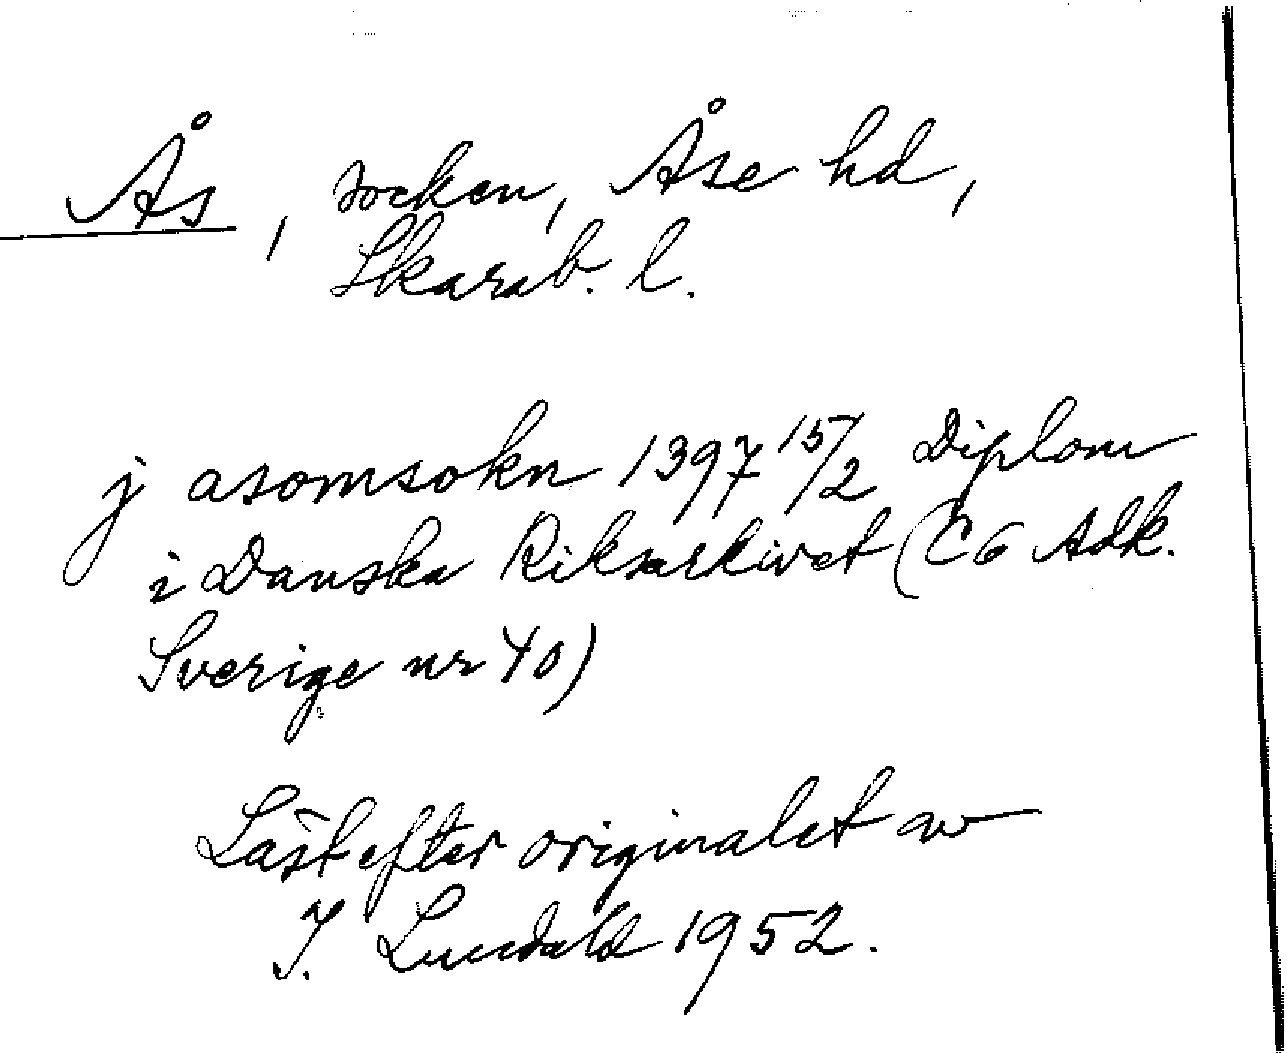 Ås, socken, Åse hd,
Skarab. l.
j asomsokn 1397 15/2 Diplom
i Danska Riksarkivet (C6 Adk.
Sverige nr 40)
Läst efter originalet av
I. Lundahl 1952.